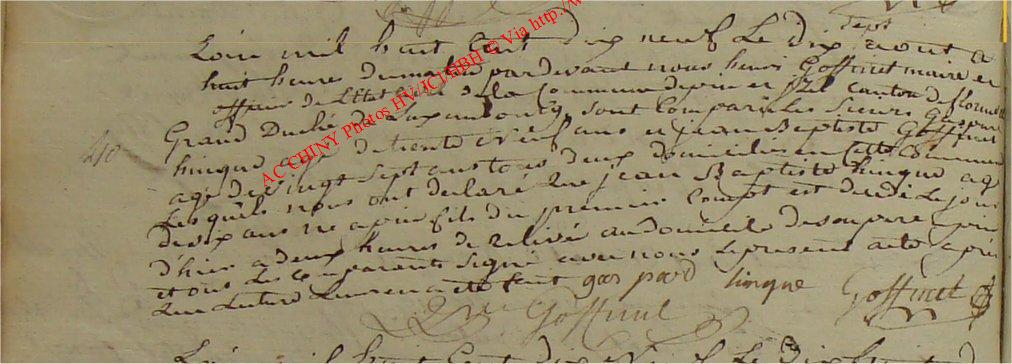 sept
L'an mil huit Cent dix neuf Le dix aout a
huit heures du matin pardevant nous henri Goffinet maire et
officier de L'Etat Civil de La Commune de pin et izel canton de florenville
Grand Duché de Luxembourg sont Comparu Les Sieurs Gaspard
hinque agé de trente neuf ans et jean Baptiste Goffinet
agé de vingt sept ans tous deux domiciliés en cette Commune
Lesquels nous ont declaré que jean Baptiste hinque agé
de six ans ne a pour fils du premier Compt est decedé Le jour
d'hier a deux heures de relivée au domicile de son pere a pin
et ont Les Comparants signé avec nous Le present acte après
que Lecture Leur en a eté fait gaspard hinque Goffinet
Goffinet
L'an mil huit Cent dix neuf Le dix huit
AC CHINY Photos HV JCl HBH © Via http:/